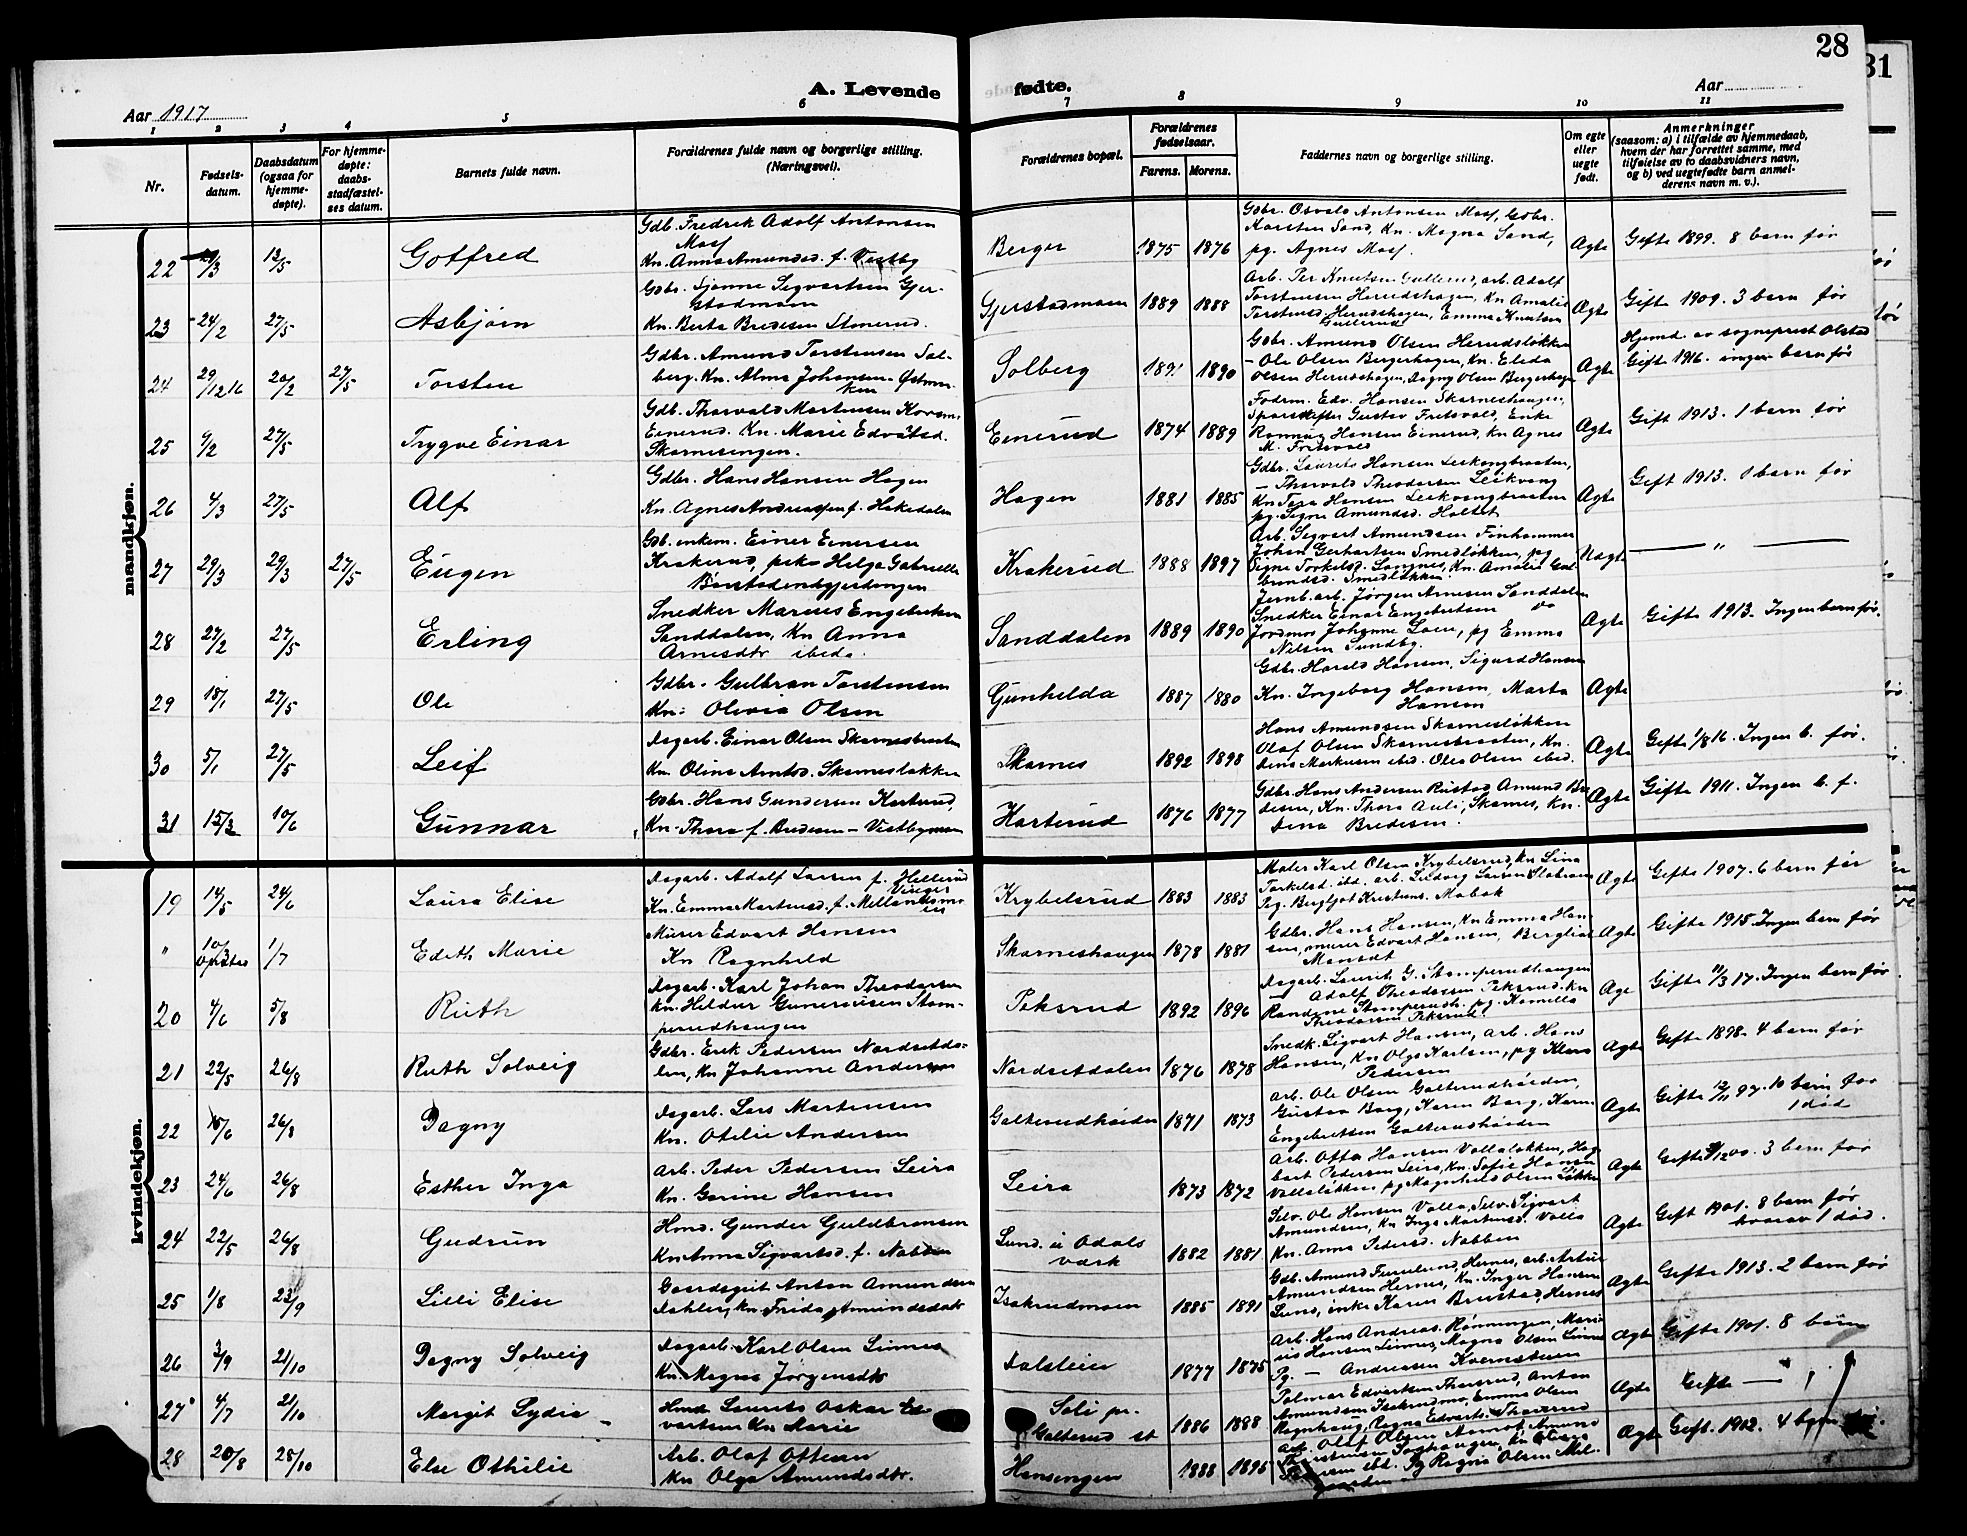 28
31
A. Levende fødte.
Aar 1917
Aar
1 2 3 4 5 6 7 8 9 10 11
Nr.
Fødsels-
datum.
Daabsdatum
(ogsaa for
hjemme-
døpte).
For hjemme-
døpte:
daabs-
stadfæstel-
ses datum.
Barnets fulde navn.
Forældrenes fulde navn og borgerlige stilling.
(Næringsvei).
Forældrenes bopæl.
Forældrenes
fødselsaar.
Farens. Morens.
Faddernes navn og borgerlige stilling.
Om egte
eller
uegte
født.
Anmerkninger
(saasom: a) i tilfælde av hjemmedaab,
hvem der har forrettet samme, med
tilføielse av to daabsvidners navn,
og b) ved uegtefødte barn anmel-
derens navn m. v.).
mandkjøn.
22 /3 13/5 Gotfred
Gdb. Fredrik Adolf Antonsen
Moss
Kn. Anna Amundsd. f. Vestby
Berger 1875 1876
Gdbr. Osvald Antonsen Moss, Gdbr.
Karsten Sand, Kn. Magna Sand,
pg. Agnes Moss.
Ægte Gifte 1899. 8 barn før
23 24/2 27/5 Asbjørn
Gdbr. Sigvartsen Gjer-
stadmoen
Kn. Berta Bredesen Stmerud.
Gjerstadmoen 1889 1888
Arb. Per Knutsen Gullerud, arb. Adolf
Torstensen Herudshagen, Kn Amalie
Torstensd. Herudshagen, Emma Knutsen
Gullerud
Ægte Gifte 1909. 3 barn før
24 29/12 16 20/2 27/5 Torsten
Gdbr. Amund Torstensen Sol-
berg. Kn. Alma Johansen Østmar-
ken
Solberg 1890
Gdbr. Amund Olsen Herudsløkken
– Ole Olsen Bergerhagen, Kn. Elida
Olsen Herudshagen, Dagny Olsen Bergerhagen
Ægte Hjemd. av sogneprest Olstad
Gifte 1916. ingen barn før
25 9/2 27/5 Trygve Einar
Gdb. Thorvald Martinsen
Einerud. Kn. Marie Edvardsd.
Skarnesengen.
Einerud 1874 1889
Fodrm. Edv. Hansen Skarneshaugen,
Gustav Fritsvold, Enke
Hansen Einerud, Kn Agnes
M. Fritsvold
Ægte Gift 1913. 1 barn før
26 4/3 27/5 Alf
Gdbr. Hans Hansen Hagen
Kn. Agnes Andreassen f. Hakedalen
Hagen 1881 1885
Gdbr. Laurits Hansen Leikvangbraaten,
– Thorvald Theodorsen Leikvang
Kn Tora Hansen Leikvangbraaten
pg. Signe Amundsd. Holtet
Ægte Gift 1913. 0 barn før
27 29/3 29/3 27/5 Eugen
Gdb. enkem. Einer Einersen
Krakerud, pike Helga Gabrielle
Krakerud 1888 1897
Arb. Sigvart Amundsen Finhammer
Johan Gerhartsen Smedløkken, pg
Signe Torkelsd. Langnes, Kn. Amalie Gul-
brandsd. Smedløkken.
Uægte — " —
28 27/2 27/5 Erling
Snedker Marius Engebretsen
Sanddalen, Kn Anna
Arnesdtr ibid.
Sanddalen 1889 1890
Jernb.arb. Jørgen Arnesen Sanddalen
Snedker Einar Engebretsen do
Jordmor Johanne Loen, pg Emma
Nilsen Sundby.
Ægte Gifte 1913. Ingen barn før.
29 18/1 27/5 Ole
Gdbr. Gulbran Torstensen
Kn: Olivia Olsen
Gunhilda 1887 1880
Gdbr. Harald Hansen, Sigurd Hansen
Kn. Ingeborg Hansen, Marta
Hansen
Ægte
30 5/1 27/5 Leif
Dagarb. Einar Olsen Skarnesbraaten
Kn. Olina Amtsd. Skarnesløkken
Skarnes 1892 1898
Hans Amundsen Skarnesløkken
Olaf Olsen Skarnesbraaten, Kn.
Lina Markusen ibid. Olea Olsen ibid.
Ægte Gifte 1/8 16. Ingen b. før.
31 15/3 10/6 Gunnar
Gdbr. Hans Gundersen Karterud,
Kn. Thora f. Bredesen – Vestbymoen
Harterud 1876 1877
Gdbr. Hans Andersen Rustad Amund Bre-
desen, Kn. Thora Auli, Skarnes, Kn.
Lina Bredesen.
Ægte Gifte 1911. Ingen b. f.
kvindekjøn.
19 14/5 24/6 Laura Elise
Dagarb. Adolf Larsen f. Hellerud
Vinger
Kn. Emma Martinsd. f. Mellandsmo-
en
Krybelsrud 1883 1883
Maler Karl Olsen Krybelsrud, Kn Lina
Torkelsd. ibd. arb. Ludvig Larsen
Pg. Bergljot Kristians. Mobak
Ægte Gifte 1907. 6 barn før
" 10/3 1/7 Edith Marie
Murer Edvart Hansen
Kn Ragnhild
Skarneshaugen 1878 1881
Gdbr. Hans Hansen, Kn Emma Han-
sen, murer Edvart Hansen, Bergliot
Ægte Gifte 1915 Ingen barn før
20 4/6 5/8 Ruth
Dagarb. Karl Johan Theodorsen
Kn. Heldur Gunerusen Stom-
perudhaugen
Peksrud 1892 1896
Dagarb. Laurits G. Stomperudhaugen
– Adolf Theodorsen Peksrud, Kn
Randine Stomperudh. pg. Kamilla
Theodorsen Peksrud
Ægte Gifte 11/3 17. Ingen barn før
21 22/5 26/8 Ruth Solveig
Gdbr. Erik Pedersen Nordsetda-
len, Kn Johanne Andersen
Nordsetdalen 1876 1878
Snedk. Sigvart Hansen, arb. Hans
Hansen, Kn Olga Karlsen, pg Klara
Pedersen
Ægte Gifte 1898. 4 barn før
22 /6 26/8 Dagny
Dagarb. Lars Martinsen
Kn. Otilie Andersen
Galterudhøiden 1871 1873
Arb. Ole Olsen Galterudhøiden,
Gustav Borg, Karen Borg, Karen
Engebretsen Galterudhøiden
Ægte Gifte 12/11 97. 10 barn før
1 død
23 24/6 26/8 Esther Inga
Arb. Peder Pedersen Leira
Kn. Gorine Hansen
Leira 1873 1872
Arb. Otto Hansen Volleløkken, Hag-
bart Pedersen Leira, Kn. Sofie Hansen
Volleløkken pg Magnhild Olsen Løkken
Ægte Gifte /12 00. 3 barn før
24 22/5 26/8 Gudrun
Hmd. Gunder Guldbransen
Kn Anna Sigvartsd. f. Nabben
Lund. i Odals
værk 1882 1881
Selv. Ole Hansen Volla, Selv. Sigvart
Amundsen, Kn Inga Martinsd. Volla
Kn. Anna Pedersd. Nabben
Ægte Gift 1901. 8 barn før
hvorav 1 død.
25 1/8 23/9 Lilli Elise
Gaardsgut Anton Amundsen
Dahlen, Kn. Frida Amundsdatr
Isakrudmoen 1885 1891
Gdb. Amund Furulund, Hernes, arb. Artur
Amundsen Hernes, Kn. Inger Hansen
Lund, enke Karen Brustad, Hernes
Ægte Gifte 1913. 2 barn før
26 3/9 21/10 Dagny Solveig
Dagarb. Karl Olsen Linnes
Kn. Magna Jørgensdtr
Dalsleien 1877 1875
Arb. Hans Andreas. Rønningen, Mari-
us Hansen Linnes, Magna Olsen Linnes
Pg. – Andreasen Kvernstuen
Ægte Gifte 1901. 8 barn
27 4/7 21/10 Margit Lydia
Hmd. Laurits Oskar Ed-
vartsen Kn Marie
Soli pr.
Galterud st 1886 1888
Palmar Edvartsen Thorsrud, Anton
Amundsen Isakrudmo, Emma Olsen
Ragnhaug, Ragna Edvarts. Thorsrud
Ægte Gifte —
28 20/8 28/10 Else Othilie
Arb. Olaf Ottesen
Kn Olga Amundsdtr.
Hansengen 1888 1895
Arb. Olaf Olsen
ibd. Pg Ragna Olsen
Ægte Gift. 1912. 4 barn